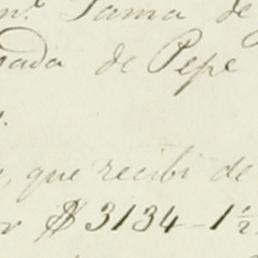 Tama de
de Pepe
que recibi de
$ 3134-1½